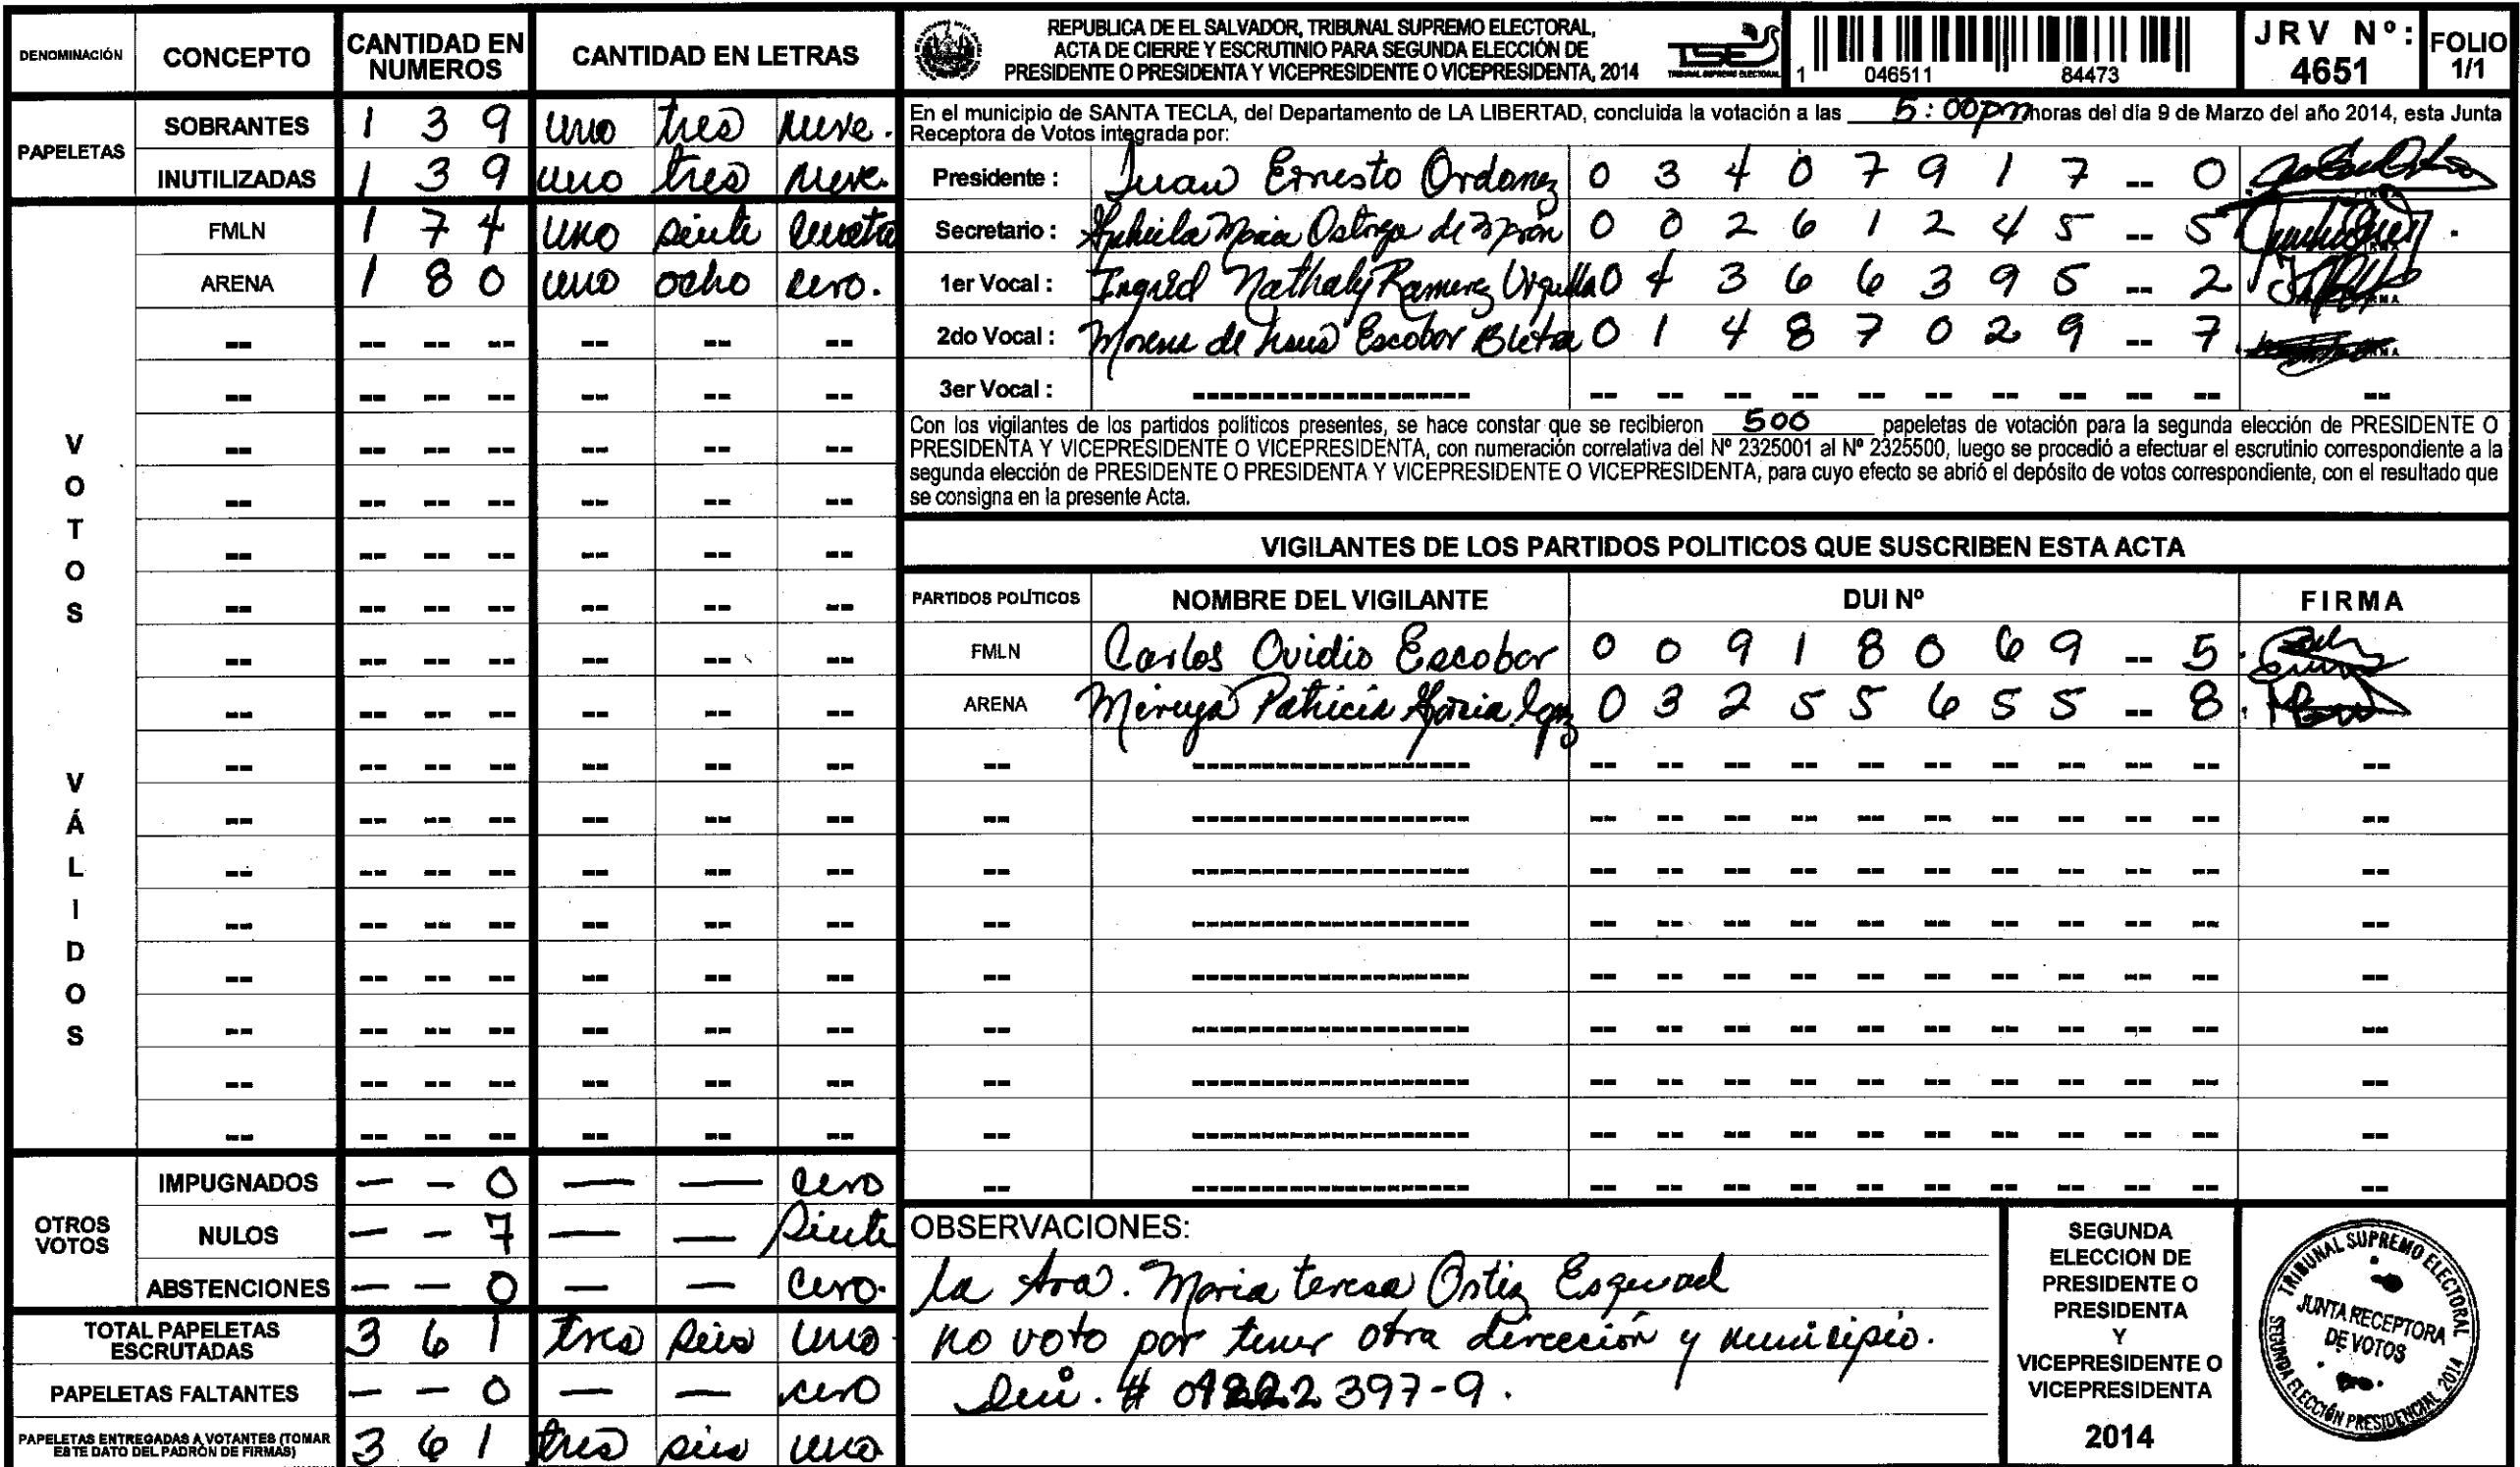 DENOMINACIÓN CONCEPTO CANTIDAD EN NUMEROS CANTIDAD EN LETRAS
PAPELETAS
SOBRANTES 1 3 9 uno tres nueve.
INUTILIZADAS 1 3 9 uno tres nueve.
VOTOS VÁLIDOS
FMLN 1 7 4 uno siete cuatro
ARENA 1 8 0 uno ocho cero.
OTROS VOTOS
IMPUGNADOS — — 0 — — cero
NULOS — — 7 — — siete
ABSTENCIONES — — 0 — — cero.
TOTAL PAPELETAS ESCRUTADAS 3 6 1 tres seis uno
PAPELETAS FALTANTES — — 0 — — cero
PAPELETAS ENTREGADAS A VOTANTES (TOMAR ESTE DATO DEL PADRÓN DE FIRMAS) 3 6 1 tres seis uno
REPUBLICA DE EL SALVADOR, TRIBUNAL SUPREMO ELECTORAL,
ACTA DE CIERRE Y ESCRUTINIO PARA SEGUNDA ELECCIÓN DE
PRESIDENTE O PRESIDENTA Y VICEPRESIDENTE O VICEPRESIDENTA, 2014
TSE
TRIBUNAL SUPREMO ELECTORAL
1 046511 84473
JRV Nº: 4651
FOLIO 1/1
En el municipio de SANTA TECLA, del Departamento de LA LIBERTAD, concluida la votación a las 5:00pm horas del día 9 de Marzo del año 2014, esta Junta
Receptora de Votos integrada por:
Presidente : Juan Ernesto Ordonez 0 3 4 0 7 9 1 7 -- 0
Secretario : 0 0 2 6 1 2 4 5 -- 5
1er Vocal : Ingrid Nathaly Ramirez 0 4 3 6 6 3 9 5 -- 2
2do Vocal : de Escobar 0 1 4 8 7 0 2 9 -- 7
3er Vocal :
Con los vigilantes de los partidos políticos presentes, se hace constar que se recibieron 500 papeletas de votación para la segunda elección de PRESIDENTE O
PRESIDENTA Y VICEPRESIDENTE O VICEPRESIDENTA, con numeración correlativa del Nº 2325001 al Nº 2325500, luego se procedió a efectuar el escrutinio correspondiente a la
segunda elección de PRESIDENTE O PRESIDENTA Y VICEPRESIDENTE O VICEPRESIDENTA, para cuyo efecto se abrió el depósito de votos correspondiente, con el resultado que
se consigna en la presente Acta.
VIGILANTES DE LOS PARTIDOS POLITICOS QUE SUSCRIBEN ESTA ACTA
PARTIDOS POLÍTICOS NOMBRE DEL VIGILANTE DUI Nº FIRMA
FMLN Carlos Ovidio Escobar 0 0 9 1 8 0 6 9 -- 5
ARENA Patricia 0 3 2 5 5 6 5 5 -- 8
OBSERVACIONES:
la Sra. Maria teresa Ortiz
no voto por tener otra dirección y municipio.
Dui. # 397-9.
SEGUNDA
ELECCION DE
PRESIDENTE O
PRESIDENTA
Y
VICEPRESIDENTE O
VICEPRESIDENTA
2014
TRIBUNAL SUPREMO ELECTORAL
JUNTA RECEPTORA
DE VOTOS
SEGUNDA ELECCIÓN PRESIDENCIAL 2014